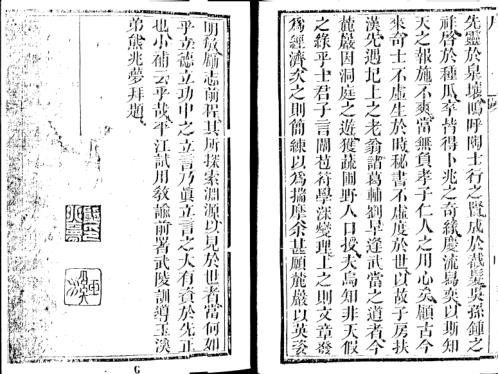 先靈於泉壤嗚呼陶士行之賢成於截髮吳孫鍾之
祥啓於種瓜辛苦得卜兆之奇綿慶流舄奕以斯知
天之報施不爽當無負孝子仁人之用心矣顧古今
來奇士不虛生於時秘書不虛度於世以故子房扶
漢先遇圯上之老翁諸葛輔劉早逢武當之道者今
麓巖因洞庭之遊獲蔬圃野人口授夫烏知非天假
之緣乎士君子言關苞符學深燮理上之則文章發
爲經濟次之則簡練以爲揣摩余甚願麓巖以英姿
明敏勵志前程其所探索淵源以見於世者當何如
乎立德立功中之立言乃眞立言之大有資於先正
也小補云乎哉平江試用敎諭前署武陵訓導玉溪
弟熊兆夢拜題
6